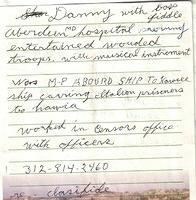 Danny with bass fiddle
Aberdeen MD hospital
entertained wouded
troops. with musical instrument
Was M-P ABOURD SHIP To Hawii
ship carring Italion prisoners
to hawia
worked in Censors office
with officers
312-814-2460
clasifide